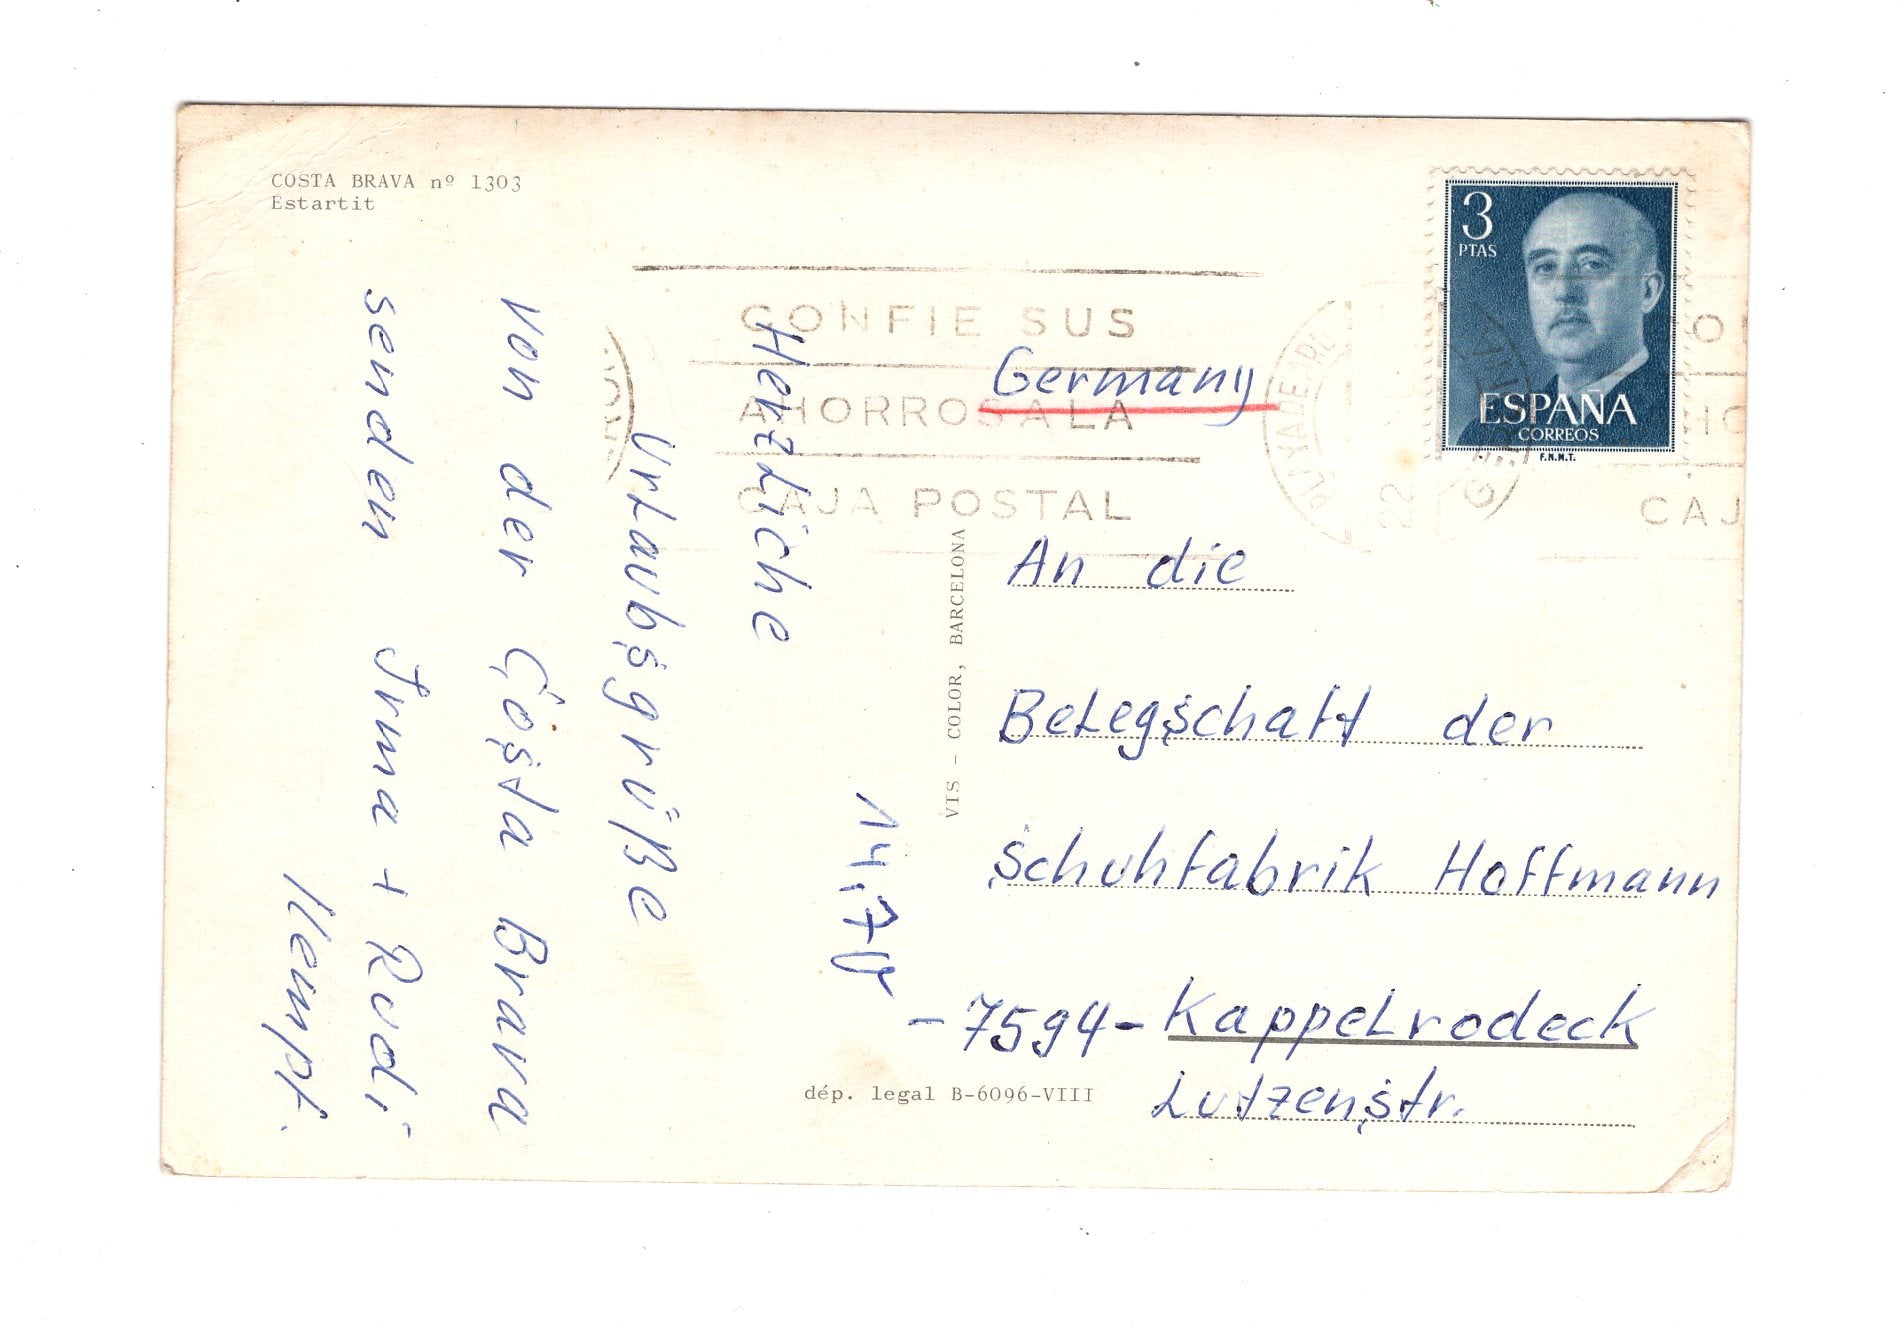 COSTA BRAVA nº 1303
Estartit
Herzliche
Urlaubsgrüße
von der Costa Brava
senden Irma + Rudi
Hempf.
VIS - COLOR, BARCELONA
dép. legal B-6096-VIII
CONFIE SUS
AHORROS A LA
CAJA POSTAL
3
PTAS
ESPAÑA
CORREOS
F.N.M.T.
22
CAJ
Germany
An die
Belegschaft der
Schuhfabrik Hoffmann
-7594- Kappelrodeck
Lutzenstr.